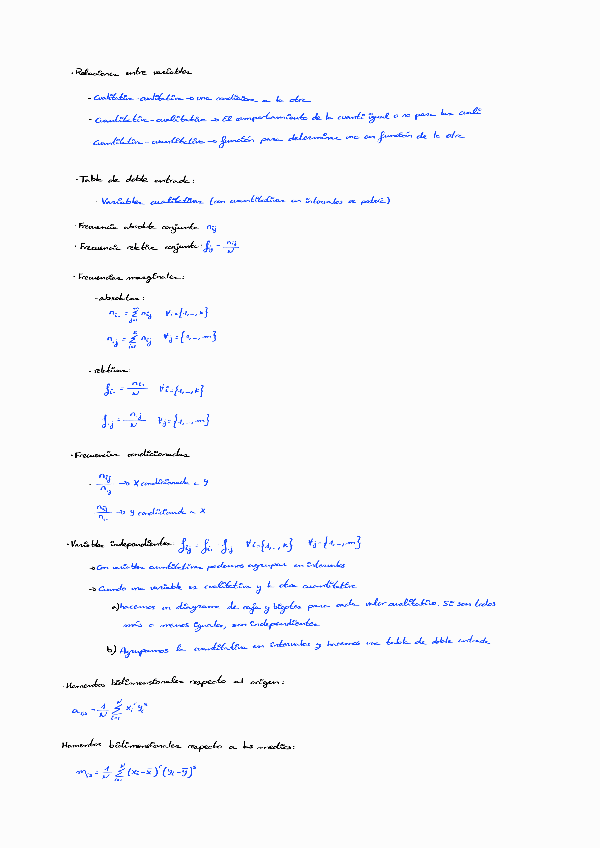 · Relaciones entre variables
- Cualitativa-cualitativa → una condiciona a la otra
- Cuantitativa-cualitativa → El comportamiento de la cuanti igual o no para las cuali
Cuantitativa-cuantitativa → función para determinar una en función de la otra
· Tabla de doble entrada:
· Variables cualitativas (con cuantitativas en intervalos se podría)
· Frecuencia absoluta conjunta n_ij
· Frecuencia relativa conjunta · f_ij = n_ij/N
· Frecuencias marginales:
- absolutas:
n_i. = Σ_{j=1}^{m} n_ij ∀i={1,..,k}
n_.j = Σ_{i=1}^{k} n_ij ∀j={1,..,m}
- relativas:
f_i. = n_i./N ∀i={1,..,k}
f_.j = n_.j/N ∀j={1,..,m}
· Frecuencias condicionadas
- n_ij/n_.j → X condicionada a Y
n_ij/n_i. → Y condicionada a X
· Variables independientes f_ij = f_i. · f_.j ∀i={1,..,k} ∀j={1,..,m}
→ Con variables cuantitativas podemos agrupar en intervalos
→ Cuando una variable es cualitativa y la otra cuantitativa
a) hacemos un diagrama de caja y bigotes para cada valor cualitativo. Si son todos
más o menos iguales, son independientes
b) Agrupamos la cuantitativa en intervalos y hacemos una tabla de doble entrada
· Momentos bidimensionales respecto al origen:
a_rs = 1/N Σ_{i=1}^{N} x_i^r y_i^s
Momentos bidimensionales respecto a las medias:
m_rs = 1/N Σ_{i=1}^{N} (x_i - x̄)^r (y_i - ȳ)^s